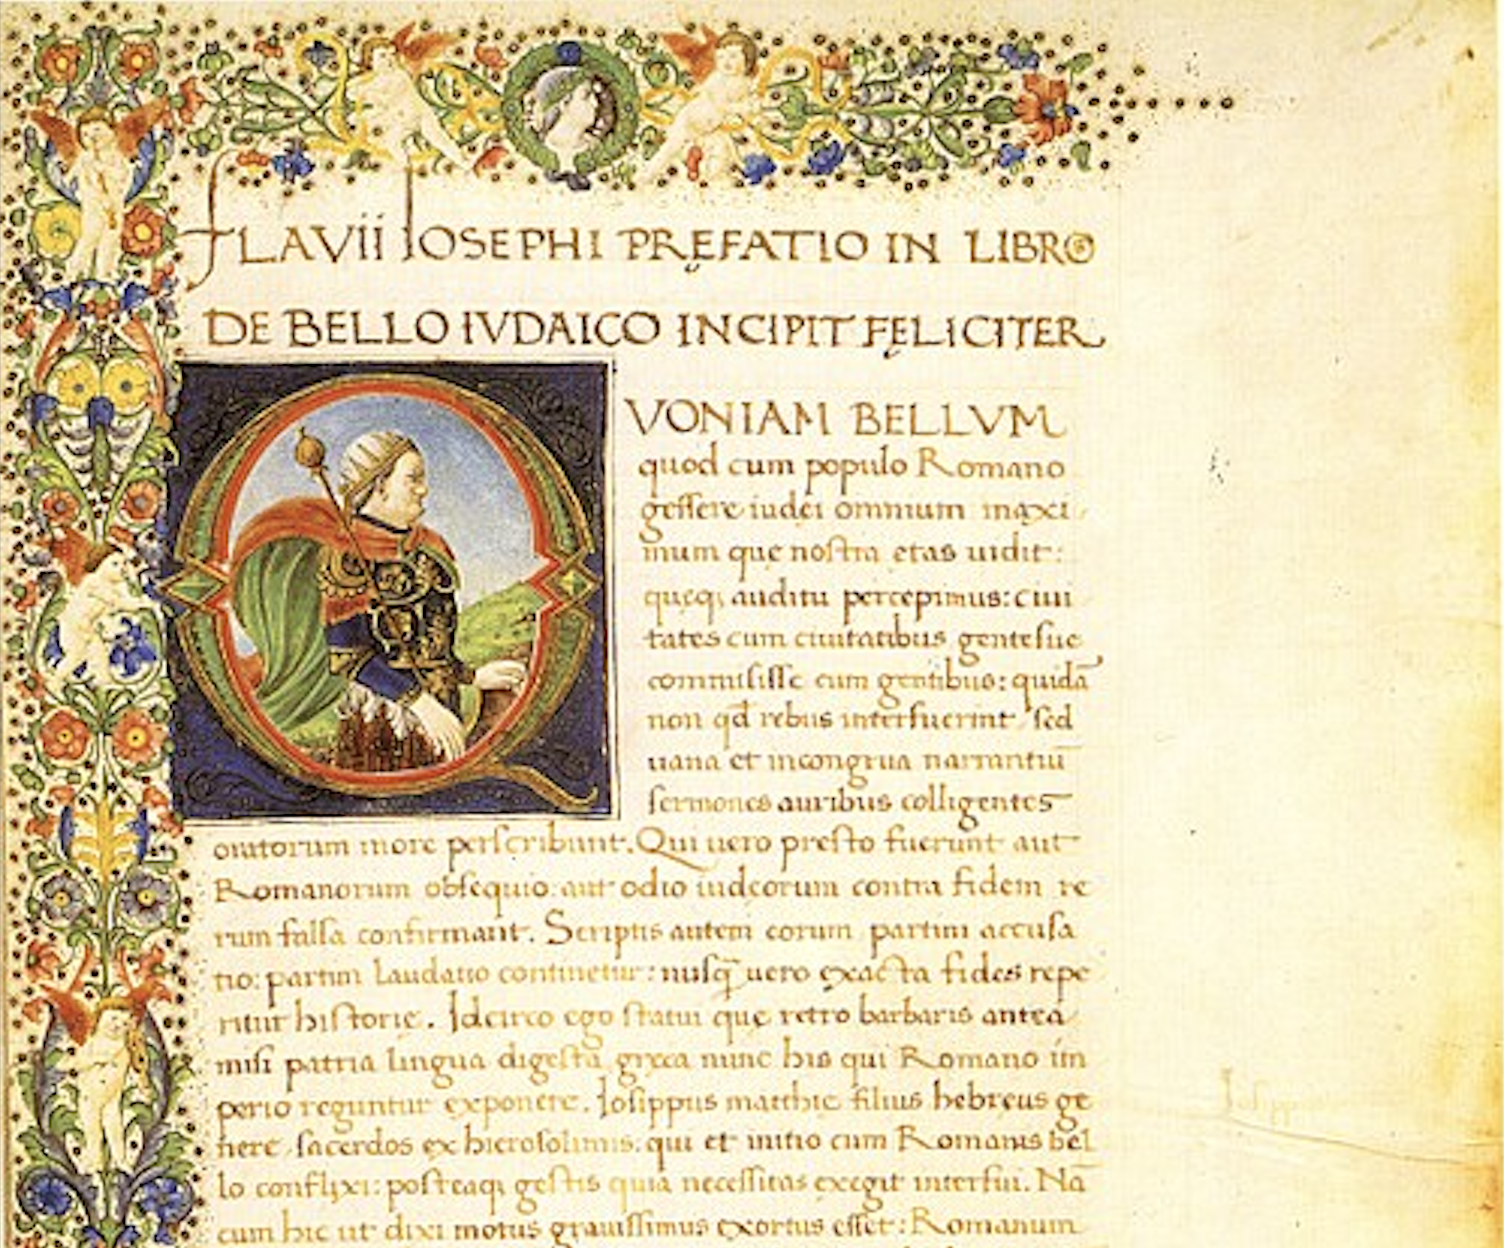 FLAVII IOSEPHI PRĘFATIO IN LIBRO
DE BELLO IVDAICO INCIPIT FĘLICITER
QVONIAM BELLVM
quod cum populo Romano
gessere iudei omnium maxi
mum que nostra etas uidit:
queq; auditu percepimus: ciui
tates cum ciuitatibus gentesue
commisisse cum gentibus: quidā
non qd̄ rebus interfuerint sed
uana et incongrua narrantiū
sermones auribus colligentes
oratorum more perscribunt. Qui uero presto fuerunt aut
Romanorum obsequio: aut odio iudeorum contra fidem re
rum falsa confirmant. Scriptis autem eorum partim accusa
tio: partim laudatio continetur: nusq̄ uero exacta fides repe
ritur historie. Idcirco ego statui que retro barbaris antea
misi patria lingua digesta greca nunc his qui Romano im
perio reguntur exponere. Iosippus matthie filius hebreus ge
nere sacerdos ex hierosolimis: qui et initio cum Romanis bel
lo conflixi: posteaq; gestis quia necessitas exegit interfui. Nā
cum hic ut dixi motus grauissimus exortus esset: Romanum
Iosippus